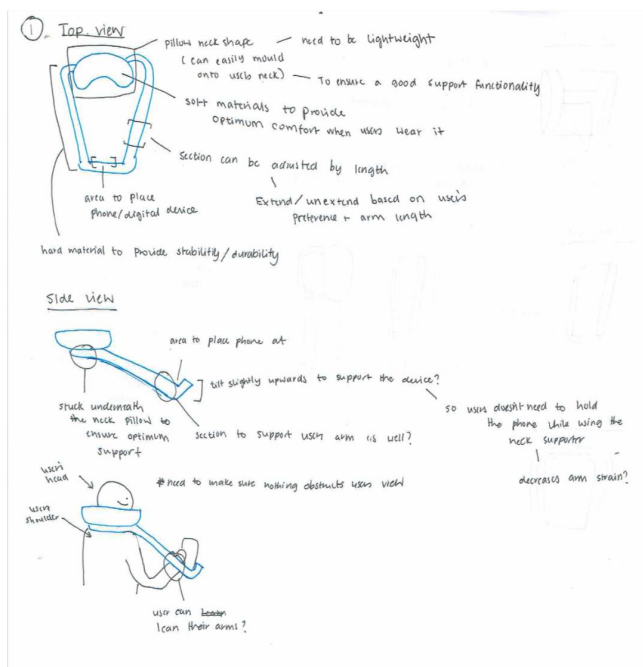 ① Top view
pillow neck shape — need to be lightweight
(can easily mould
onto users neck) — To ensure a good support functionality
soft materials to provide
optimum comfort when users wear it
section can be adjusted by length
Extend/unextend based on users
preference + arm length
area to place
phone/digital device
hard material to provide stability/durability
Side view
area to place phone at
tilt slightly upwards to support the device?
so users doesn't need to hold
the phone while using the
neck supporter
decreases arm strain?
stuck underneath
the neck pillow to
ensure optimum
support
section to support users arm as well?
users
head
users
shoulder
*need to make sure nothing obstructs users view
user can
lean their arms?